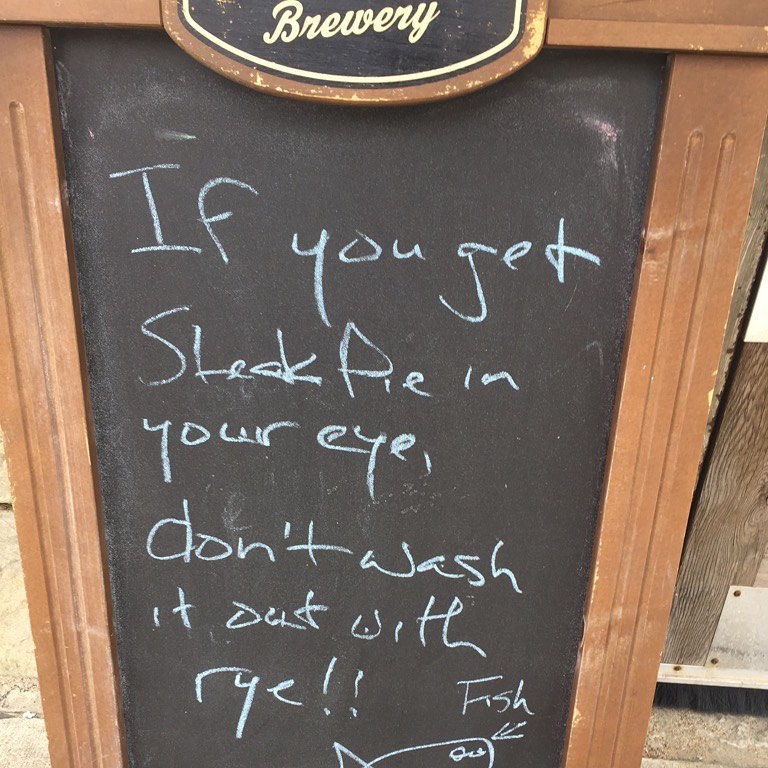 Brewery
If you get
Steak Pie in
your eye,
don't wash
it out with
rye!!
Fish